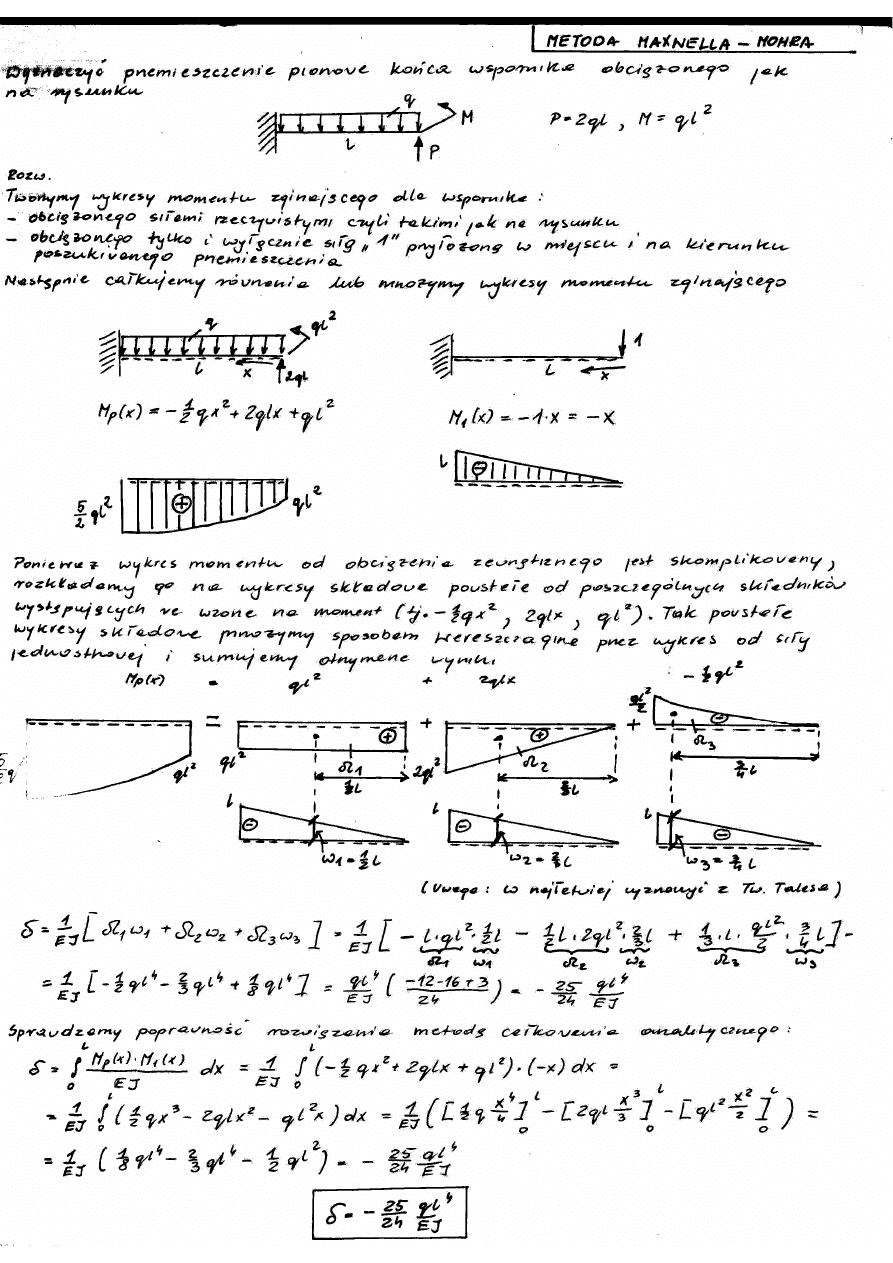 METODA MAXWELLA – MOHRA
Wyznaczyć przemieszczenie pionowe końca wspornika obciążonego jak
na rysunku
q
M
l
P
P = 2ql , M = ql²
Rozw.
Tworzymy wykresy momentu zginającego dla wspornika :
– obciążonego siłami rzeczywistymi czyli takimi jak na rysunku
– obciążonego tylko i wyłącznie siłą „1" przyłożoną w miejscu i na kierunku
poszukiwanego przemieszczenia
Następnie całkujemy równania lub mnożymy wykresy momentu zginającego
q ql² 1
l x 2ql l x
Mp(x) = – 1/2 qx² + 2qlx + ql² M₁(x) = –1·x = –x
5/2 ql² + ql² l ⊖
Ponieważ wykres momentu od obciążenia zewnętrznego jest skomplikowany,
rozkładamy go na wykresy składowe powstałe od poszczególnych składników
występujących we wzorze na moment (tj. – 1/2 qx² , 2qlx , ql²). Tak powstałe
wykresy składowe mnożymy sposobem Wereszczagina przez wykres od siły
jednostkowej i sumujemy otrzymane wyniki
Mp(x) = ql² + 2qlx – 1/2 ql²
ql²/2 ⊖
= ⊕ + ⊕ + Ω₃
ql² ql² Ω₁ 2ql² Ω₂ 3/4 l
1/2 l 2/3 l
l ⊖ l ⊖ l ⊖
ω₁ = 1/2 l ω₂ = 2/3 l ω₃ = 3/4 l
(Uwaga : ω najłatwiej wyznaczyć z Tw. Talesa)
δ = 1/EJ [ Ω₁ω₁ + Ω₂ω₂ + Ω₃ω₃ ] = 1/EJ [ – l·ql²·1/2 l – 1/2 l·2ql²·2/3 l + 1/3·l·ql²/2·3/4 l ] =
Ω₁ ω₁ Ω₂ ω₂ Ω₃ ω₃
= 1/EJ [ – 1/2 ql⁴ – 2/3 ql⁴ + 1/8 ql⁴ ] = ql⁴/EJ ( –12–16+3 / 24 ) = – 25/24 ql⁴/EJ
Sprawdzamy poprawność rozwiązania metodą całkowania analitycznego :
δ = ∫₀ˡ Mp(x)·M₁(x)/EJ dx = 1/EJ ∫₀ˡ (– 1/2 qx² + 2qlx + ql²)·(–x) dx =
= 1/EJ ∫₀ˡ ( 1/2 qx³ – 2qlx² – ql²x ) dx = 1/EJ ( [ 1/2 q x⁴/4 ]₀ˡ – [ 2ql x³/3 ]₀ˡ – [ ql² x²/2 ]₀ˡ ) =
= 1/EJ ( 1/8 ql⁴ – 2/3 ql⁴ – 1/2 ql² ) = – 25/24 ql⁴/EJ
δ = – 25/24 ql⁴/EJ